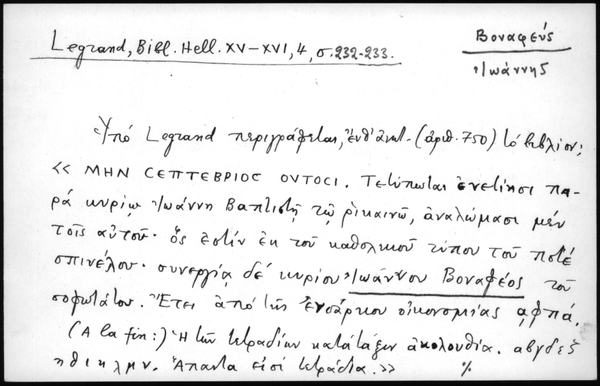 Legrand, Bibl. Hell. XV–XVI, 4, σ. 232-233.
Βοναφεύς
Ἰωάννης
Ὑπό Legrand περιγράφεται, ἔνθ' ἀνωτ. (ἀριθ. 750) τό βιβλίον;
«ΜΗΝ CΕΠΤΕΒΡΙΟC ΟΥΤΟCΙ. Τετύπωται ἐνετίησι πα-
ρά κυρίῳ Ἰωάννῃ Βαπτιστῇ τῷ ῥικαινῷ, ἀναλώμασι μέν
τοῖς αὐτοῦ· ὅς ἐστίν ἐκ τοῦ καθολικοῦ τύπου τοῦ ποτέ
σπινέλου· συνεργίᾳ δέ κυρίου Ἰωάννου Βοναφέος τοῦ
σοφωτάτου. Ἔτει ἀπό τῆς ἐνσάρκου οἰκονομίας αφπά.
(A la fin:) Ἡ τῶν τετραδίων κατάταξιν ἀκολουθία. αβγδεξ
ηθικλμν. Ἅπαντα εἰσί τετράδια.» %